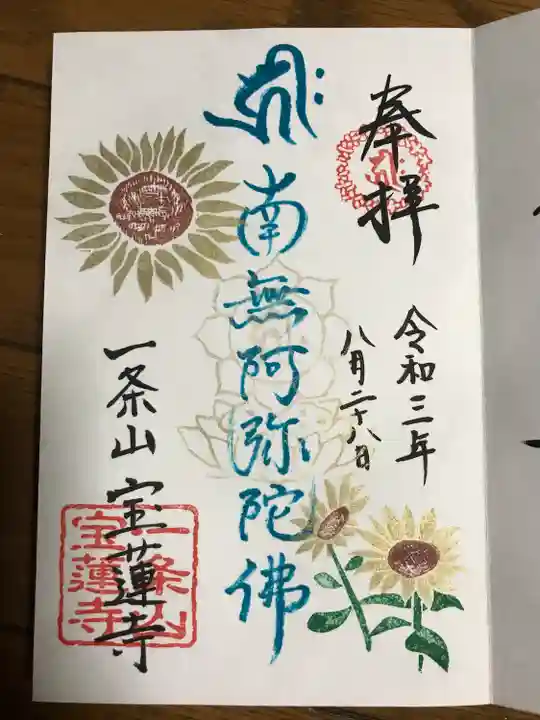 奉拝
令和三年
八月二十八日
南無阿弥陀佛
一条山 宝蓮寺
一条山
宝蓮寺